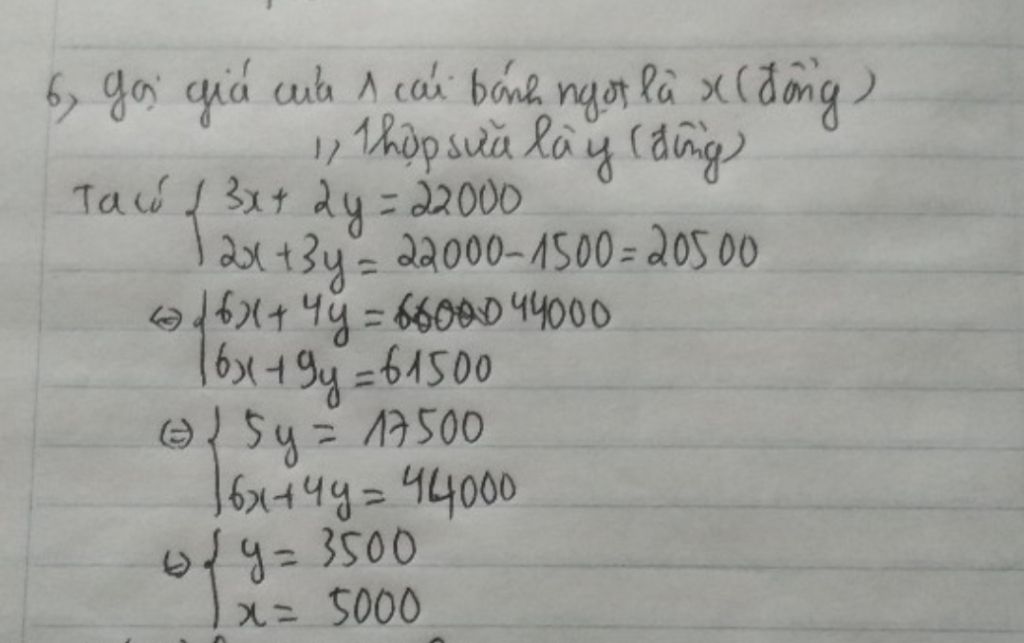 6, gọi giá của 1 cái bánh ngọt là x (đồng)
1 hộp sữa là y (đồng)
Ta có { 3x + 2y = 22000
2x + 3y = 22000 - 1500 = 20500
⇔ { 6x + 4y = 44000
6x + 9y = 61500
⇔ { 5y = 17500
6x + 4y = 44000
⇔ { y = 3500
x = 5000